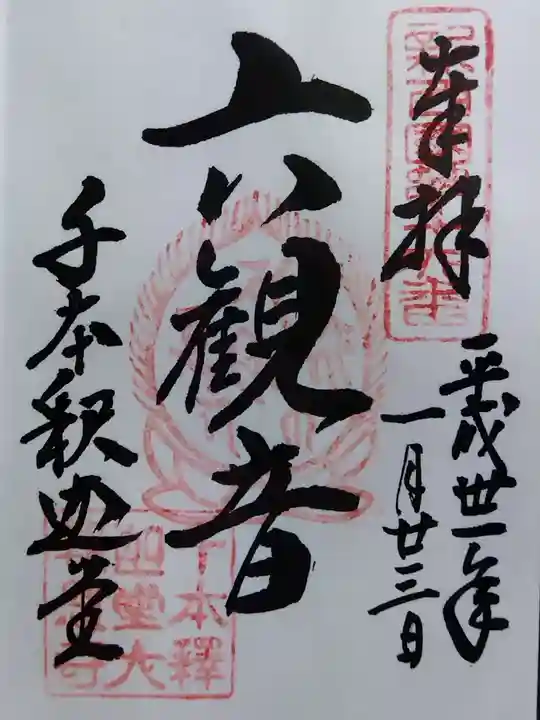 奉拝
平成卅一年
一月廿三日
六観音
千本釈迦堂
千本釋
迦堂大
報恩寺